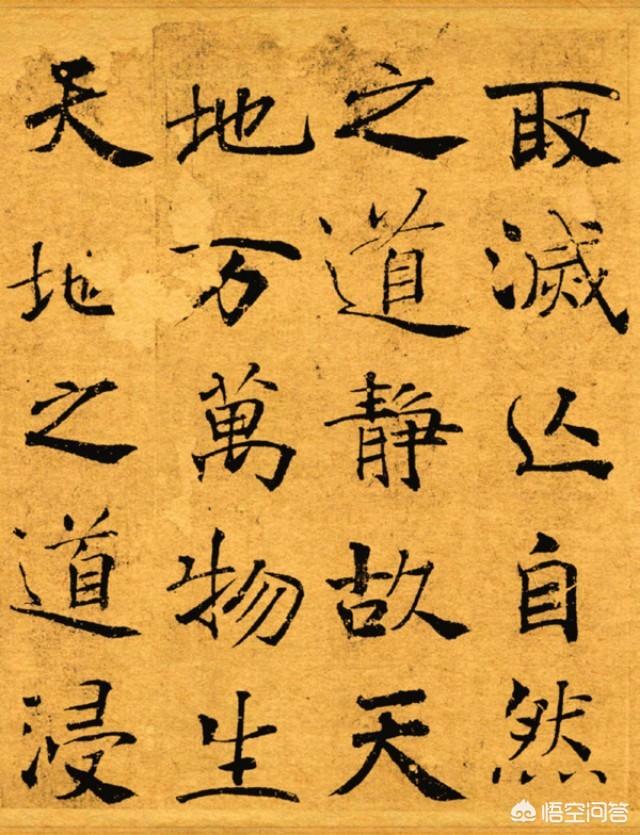 取滅亾自然
之道靜故天
地万萬物生
天地之道浸
悟空问答